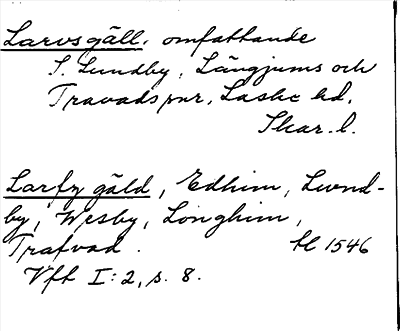 Larvs gäll, omfattande
S. Lundby, Längjums och
Travads snr, Laske hd,
Skar. l.
Larfz gäld, Edhim, Lwnd-
by, Wesby, Longhim,
Trafvad. tl 1546
Vft I: 2, s. 8.